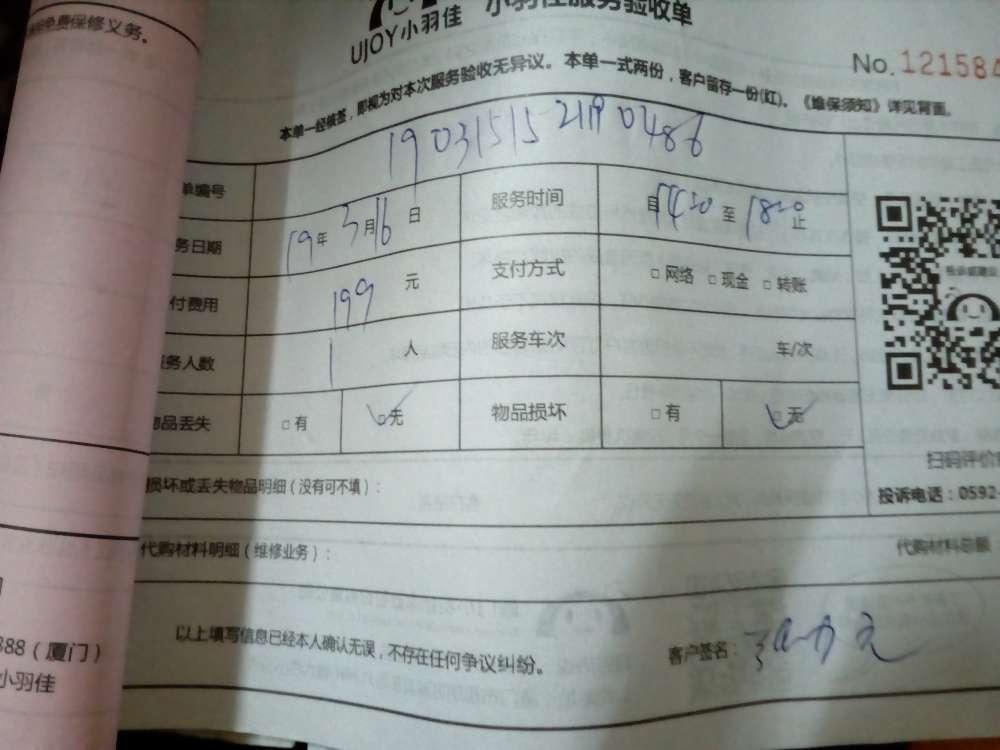 免费保修义务。
UJOY小羽佳
小羽佳服务验收单
No.121584
本单一经被签，即视为对本次服务验收无异议。本单一式两份，客户留存一份(红)。《维保须知》详见背面。
单编号 1903151521190486
务日期 19年3月16日 服务时间 自1430至1830止
付费用 199元 支付方式 □网络 □现金 □转账
务人数 1人 服务车次 车/次
物品丢失 □有 □无 物品损坏 □有 □无
扫码评价
损坏或丢失物品明细（没有可不填）：
投诉电话：0592-
代购材料明细（维修业务）：
代购材料总额
以上填写信息已经本人确认无误，不存在任何争议纠纷。
客户签名：
888（厦门）
小羽佳